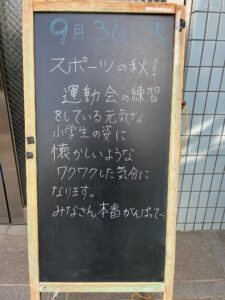 9月30日火
スポーツの秋!
運動会の練習
をしている元気な
小学生の姿に
懐かしいような
ワクワクした気分に
なります。
みなさん本番がんばって〜